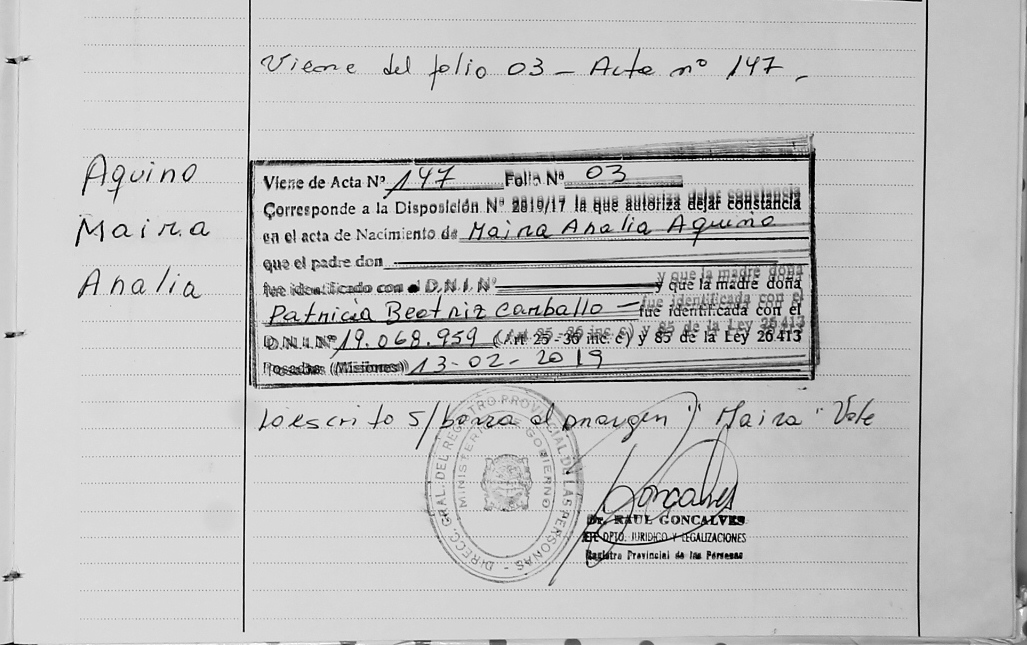 Viene del folio 03 - Acta nº 147 -
Aquino
Maira
Analia
Viene de Acta Nº 147 Folio Nº 03
Corresponde a la Disposición Nº 2819/17 la que autoriza dejar constancia
en el acta de Nacimiento de Maira Analia Aquino
que el padre don
fue identificado con el D.N.I. Nº y que la madre doña
Patricia Beatriz Carballo fue identificada con el
D.N.I. Nº 19.068.959 (Art 25 - 36 inc. c) y 85 de la Ley 26413
Posadas (Misiones) 13-02-2019
Lo escrito s/ borra al margen "Maira" Vale
DIRECC. GRAL. DEL REGISTRO PROVINCIAL DE LAS PERSONAS
MINISTERIO DE GOBIERNO
Goncalves
Dr. RAUL GONCALVES
JEFE DPTO. JURIDICO Y LEGALIZACIONES
Registro Provincial de las Personas